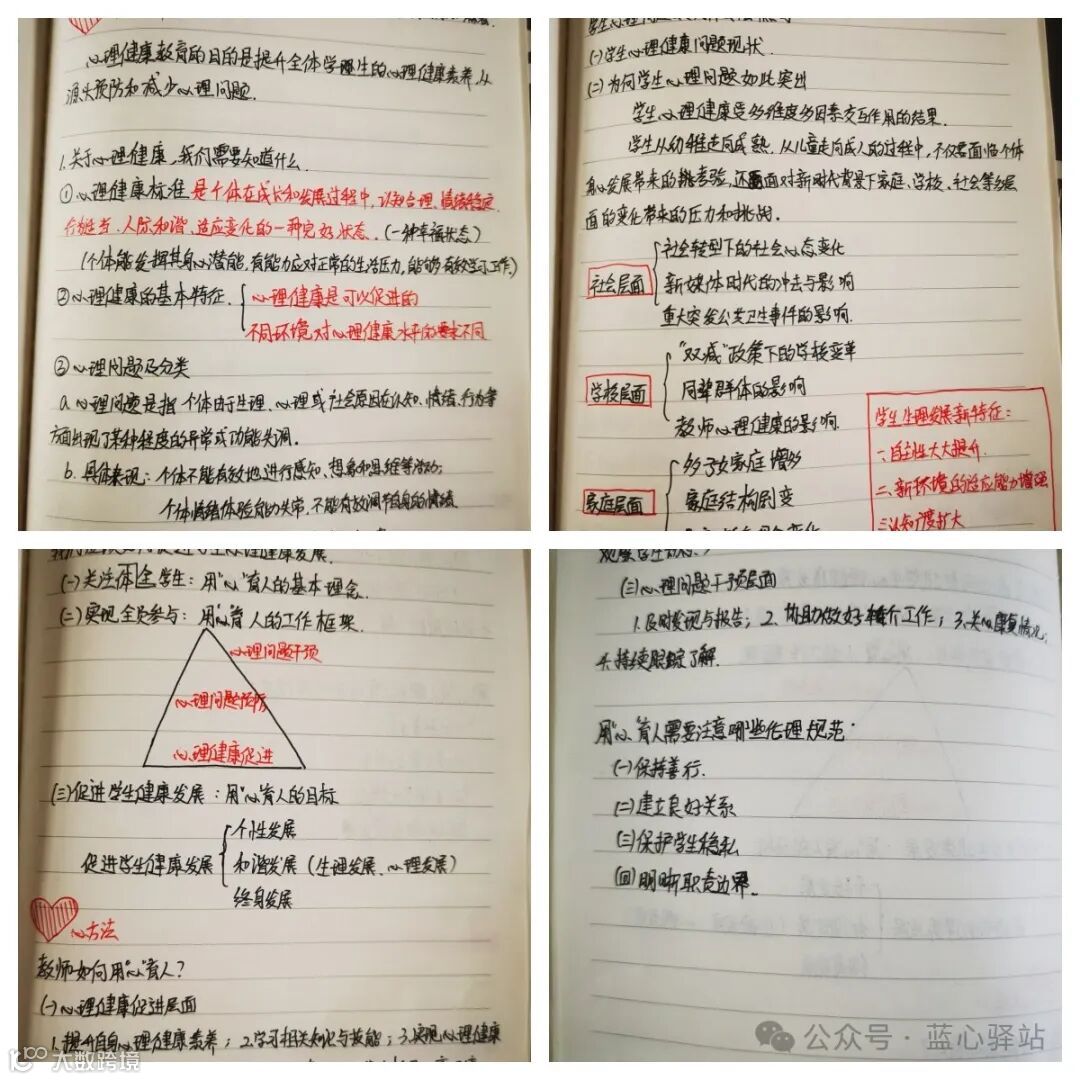 心理健康教育的目的是提升全体学生的心理健康素养,从
源头预防和减少心理问题.
1.关于心理健康,我们需要知道什么
①心理健康标准 是个体在成长和发展过程中,认知合理、情绪稳定、
行为适当、人际和谐、适应变化的一种完好状态.(一种幸福状态)
(个体能发挥其身心潜能,有能力应对正常的生活压力,能够有效学习工作.)
②心理健康的基本特征. 心理健康是可以促进的
不同环境对心理健康水平的要求不同
③心理问题及分类
a.心理问题是指个体由于生理、心理或社会原因在认知、情绪、行为等
方面出现了某种程度的异常或功能失调.
b.具体表现:个体不能有效地进行感知、想象和思维等活动;
个体情绪体验能力失常,不能有效调节自身的情绪
(一)学生心理健康问题现状.
(二)为何学生心理问题如此突出
学生心理健康受多维度多因素交互作用的结果.
学生从幼稚走向成熟,从儿童走向成人的过程中,不仅要面临个体
身心发展带来的挑考验,还要面对新时代背景下家庭、学校、社会等多层
面的变化带来的压力和挑战.
社会层面
社会转型下的社会心态变化
新媒体时代的冲击与影响
重大突发公共卫生事件的影响.
学校层面
"双减"政策下的学校变革
同辈群体的影响
教师心理健康的影响.
家庭层面
多子女家庭增多
家庭结构剧变
学生生理发展新特征:
一、自主性大大提升.
二、新环境的适应能力增强
三、认知广度扩大
(一)关注全体学生:用"心"育人的基本理念.
(二)实现全员参与:用"心"育人的工作框架.
心理问题干预
心理问题预防
心理健康促进
(三)促进学生健康发展:用"心"育人的目标
促进学生健康发展
个性发展
和谐发展(生理发展、心理发展)
终身发展
心方法
教师如何用"心"育人?
(一)心理健康促进层面
1.提升自身心理健康素养;2.学习相关知识与技能;3.实现心理健康
(三)心理问题干预层面
1.及时发现与报告;2.协助做好转介工作;3.关心康复情况;
4.持续跟踪了解.
用"心"育人需要注意哪些伦理规范:
(一)保持善行.
(二)建立良好关系
(三)保护学生隐私
(四)明晰职责边界.
公众号·蓝心驿站
大数跨境